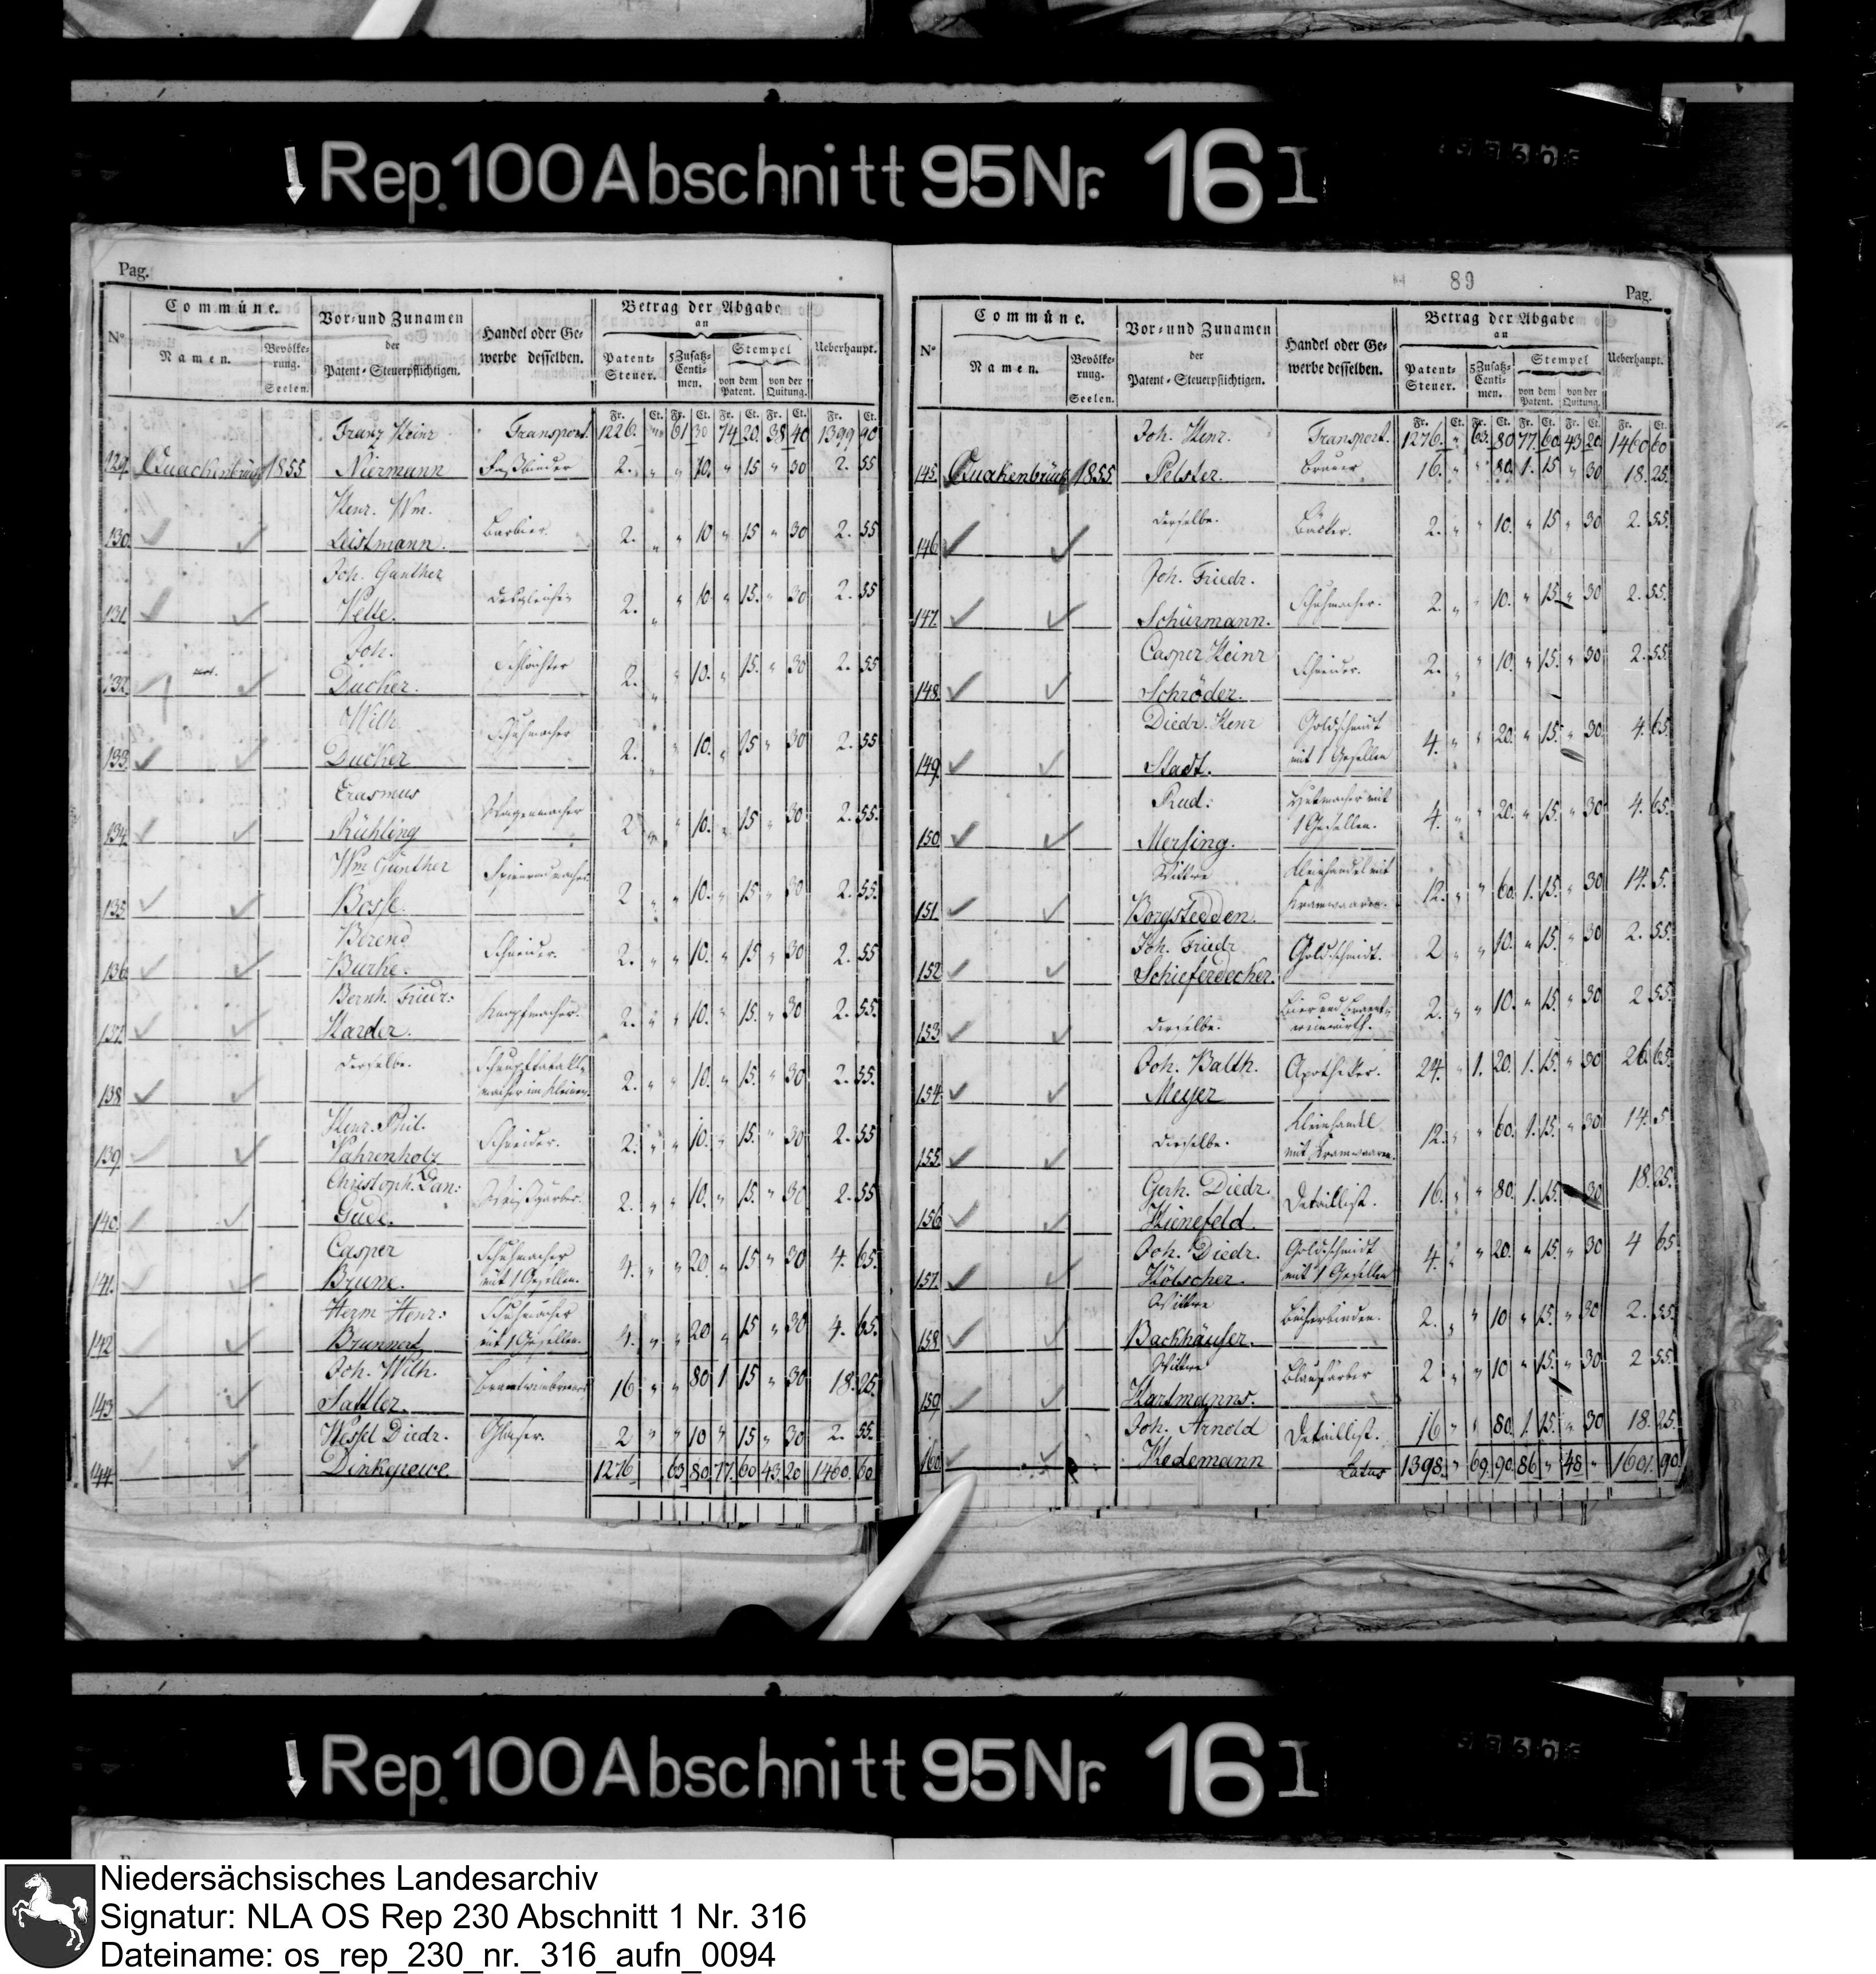 ↓ Rep. 100 Abschnitt 95 Nr. 16 I
Pag.
N° Commüne. Vor- und Zunamen der Patent-Steuerpflichtigen. Handel oder Gewerbe desselben. Betrag der Abgabe an Ueberhaupt.
Namen. Bevölkerung. Seelen. Patent-Steuer. 5 Zusatz-Centimen. Stempel von dem Patent. von der Quitung.
Fr. Ct. Fr. Ct. Fr. Ct. Fr. Ct. Fr. Ct.
Transport. 1226. " 61 30 74 20. 38 40 1399 90
129. Quackenbrück 1855 Franz Heinr Niermann Faßbinder 2. " " 10. " 15 " 30 2. 55
130. Henr. Wm. Leistmann. Barbier. 2. " " 10 " 15 " 30 2. 55
131. Joh. Gunther Velle. desgleichen 2. " " 10 " 15. " 30 2. 55
132. Joh. Ducker. Schlächter 2. " " 10. " 15. " 30 2. 55
133. Wilh Ducker Schuhmacher 2. " " 10. " 15 " 30 2. 55
134. Erasmus Rühling 2 " " 10. " 15 " 30 2. 55.
135. Wm Günther Bosse. 2 " " 10. " 15 " 30 2. 55.
136. Berend Burke. Schneider. 2. " " 10. " 15 " 30 2. 55
137. Bernh. Friedr: Harder. Knopfmacher. 2. " " 10. " 15. " 30 2. 55.
138 derselbe. 2. " " 10. " 15. " 30 2. 55.
139. Henr. Phil. Vahrenholz Schneider. 2. " " 10. " 15. " 30 2. 55
140. Christoph. Dan: Gude. Weißgärber. 2. " " 10. " 15. " 30 2. 55
141. Casper Brune. Schuhmacher mit 1 Gesellen. 4. " " 20. " 15 " 30 4. 65.
142 Herm Henr: Brunnert Schuhmacher mit 1 Gesellen. 4. " " 20 " 15 " 30 4. 65.
143 Joh. Wilh. Sattler. 16 " " 80 1 15 " 30 18. 25.
144 Wessel Diedr. Dinkgrewe Glaser. 2 " " 10 " 15 " 30 2. 55.
1276 63 80 77. 60 43. 20 1460. 60
89
Pag.
N° Commüne. Vor- und Zunamen der Patent-Steuerpflichtigen. Handel oder Gewerbe desselben. Betrag der Abgabe an Ueberhaupt.
Namen. Bevölkerung. Seelen. Patent-Steuer. 5 Zusatz-Centimen. Stempel von dem Patent. von der Quitung.
Fr. Ct. Fr. Ct. Fr. Ct. Fr. Ct. Fr. Ct.
Transport. 1276. " 63. 80 77. 60 43 20 1460 60
145. Quakenbrück 1855. Joh. Henr. Pelster. Brauer 16. " " 80. 1. 15 " 30 18. 25.
146 derselbe. Bäcker. 2. " " 10. " 15 " 30 2. 55.
147. Joh. Friedr. Schürmann. Schuhmacher. 2. " " 10. " 15 " 30 2. 55.
148. Casper Heinr Schröder. Schneider. 2. " " 10. " 15. " 30 2. 55.
149. Diedr. Henr Stadt. Goldschmidt mit 1 Gesellen 4. " " 20. " 15. " 30. 4. 65.
150. Rud: Mersing. Hutmacher mit 1 Gesellen. 4. " " 20. " 15. " 30 4. 65.
151. Wittwe Borgstedden. Kleinhandel mit Kramwaaren. 12. " " 60. 1. 15. " 30 14. 5.
152. Joh. Friedr Schieferdecker. Goldschmidt. 2 " " 10. " 15. " 30 2. 55.
153 derselbe. Bier und Brantweinwirth. 2. " " 10. " 15. " 30 2 55.
154. Joh. Balth. Meyer Apotheker. 24. " 1. 20. 1. 15. " 30 26. 65.
155. derselbe. Kleinhandel mit Kramwaaren 12. " " 60. 1. 15. " 30 14. 5
156 Gerh. Diedr. Hienefeld Detaillist. 16. " " 80. 1. 15. " 30 18. 25.
157. Joh. Diedr. Hölscher. Goldschmidt mit 1 Gesellen 4. " " 20. " 15. " 30 4 65
158 Wittwe Backhäuser. 2. " " 10 " 15. " 30 2. 55.
159. Wittwe Hartmanns. Blaufärber 2 " " 10 " 15. " 30 2 55.
160. Joh. Arnold Hedemann Detaillist. 16 " " 80. 1. 15. " 30 18. 25.
Latus 1398. " 69. 90. 86 " 48 " 1601. 90
↓ Rep. 100 Abschnitt 95 Nr. 16 I
Niedersächsisches Landesarchiv
Signatur: NLA OS Rep 230 Abschnitt 1 Nr. 316
Dateiname: os_rep_230_nr._316_aufn_0094